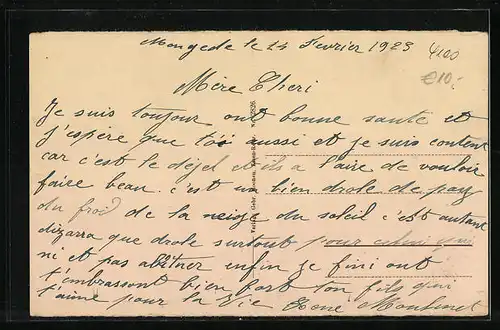 le 14 Fevrier 1923
4100
€10,-
Mère Cheri
Je suis toujour ont bonne sante et
j'espère que toi aussi et je suis content
car c'est le dégel et il a l'aire de vouloir
faire beau. c'est un bien drole de pay
du froid de la neige du soleil c'est autant
dizarra que drole surtout pour celui qui
ni et pas abitner enfin je fini ont
t'embrassent bien fort ton fils qui
t'aime pour la vie